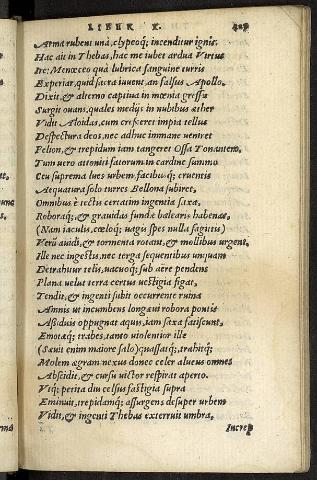 LIBER X.
Arma rubent unà, clypeoq; incenditur ignis.
Hac ait in Thebas, hac me iubet ardua Virtus
Ire: Menœceo quà lubrica sanguine turris
Experiar, quid sacra iuuent, an falsus Apollo.
Dixit, & alterno captiua in mœnia gressu
Surgit ouans, quales medijs in nubibus æther
Vidit Aloidas, cum cresceret impia tellus
Despectura deos, nec adhuc immane ueniret
Pelion, & trepidum iam tangeret Ossa Tonantem.
Tum uero attoniti fatorum in cardine summo
Ceu suprema lues urbem, facibusq; cruentis
Aequatura solo turres Bellona subiret,
Omnibus è tectis certatim ingentia saxa,
Roboraq;, & grauidas fundæ balearis habenas,
(Nam iaculis, cœloq; uagis spes nulla sagittis)
Verū auidi, & tormenta rotant, & mollibus urgent,
Ille nec ingestis, nec terga sequentibus unquam
Detrahitur telis, uacuoq; sub aere pendens
Plana uelut terra certus uestigia figat,
Tendit, & ingenti subit occurrente ruina
Amnis ut incumbens longæui robora pontis
Assiduis oppugnat aquis, iam saxa fatiscunt,
Emotæq; trabes, tanto uiolentior ille
(Sæuit enim maiore salo) quassatq;, trahitq;
Molem ægram nexus donec celer alueus omnes
Abscidit, & cursu uictor respirat aperto.
Vtq; petita diu celsus fastigia supra
Eminuit, trepidamq; assurgens desuper urbem
Vidit, & ingenti Thebas exterruit umbra,
Increp